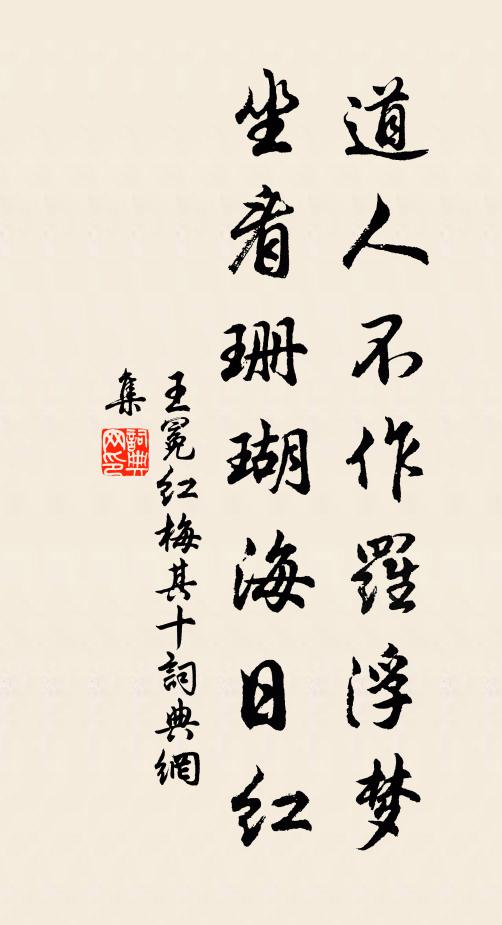 道人不作羅浮梦
坐看珊瑚海日红
王冕红梅其十詞典網
集
詞典网印